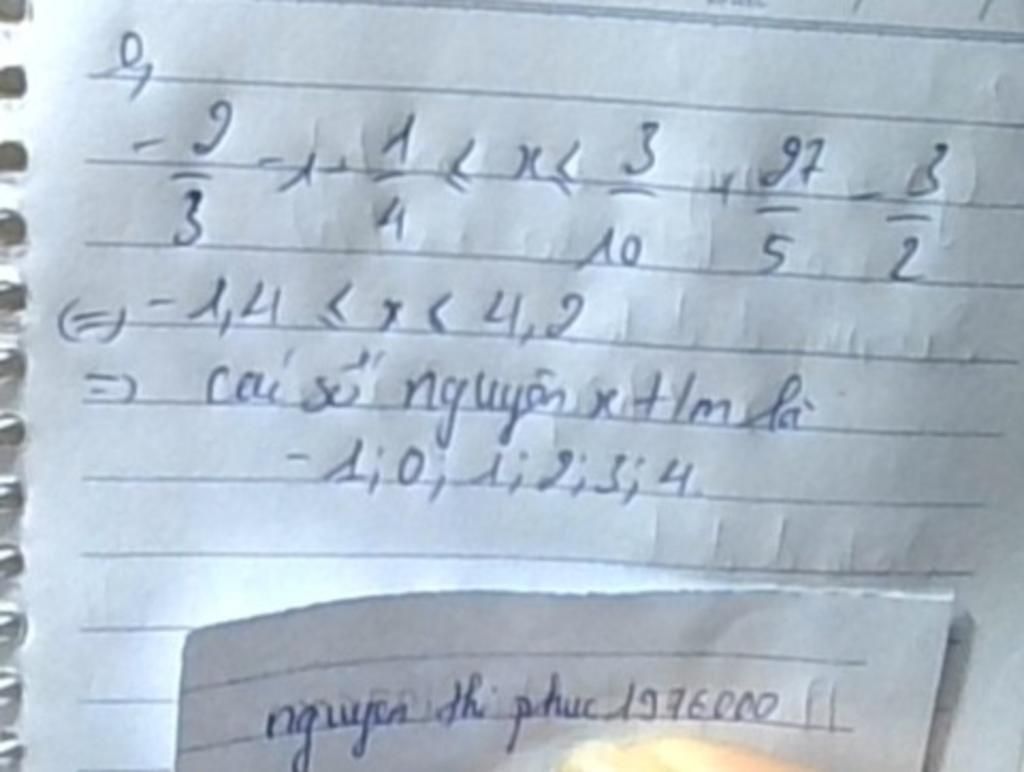 0,
- 2/3 - 1 - 1/4 < x < 3/10 + 27/5 - 3/2
(=) -1,4 < x < 4,2
=) các số nguyên x t/m là
-1; 0; 1; 2; 3; 4.
nguyen thi phuc 1976000